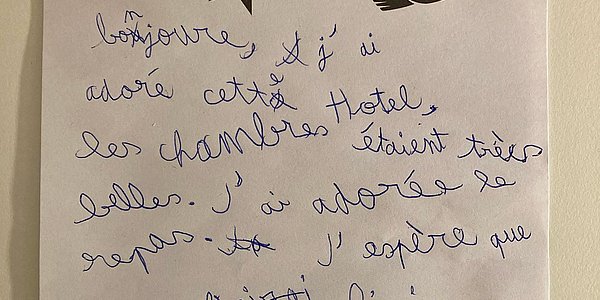 bonjoure, j'ai
adoré cette Hotel,
les chambres étaient très
belles. J'ai adorée le
repas. J'espère que